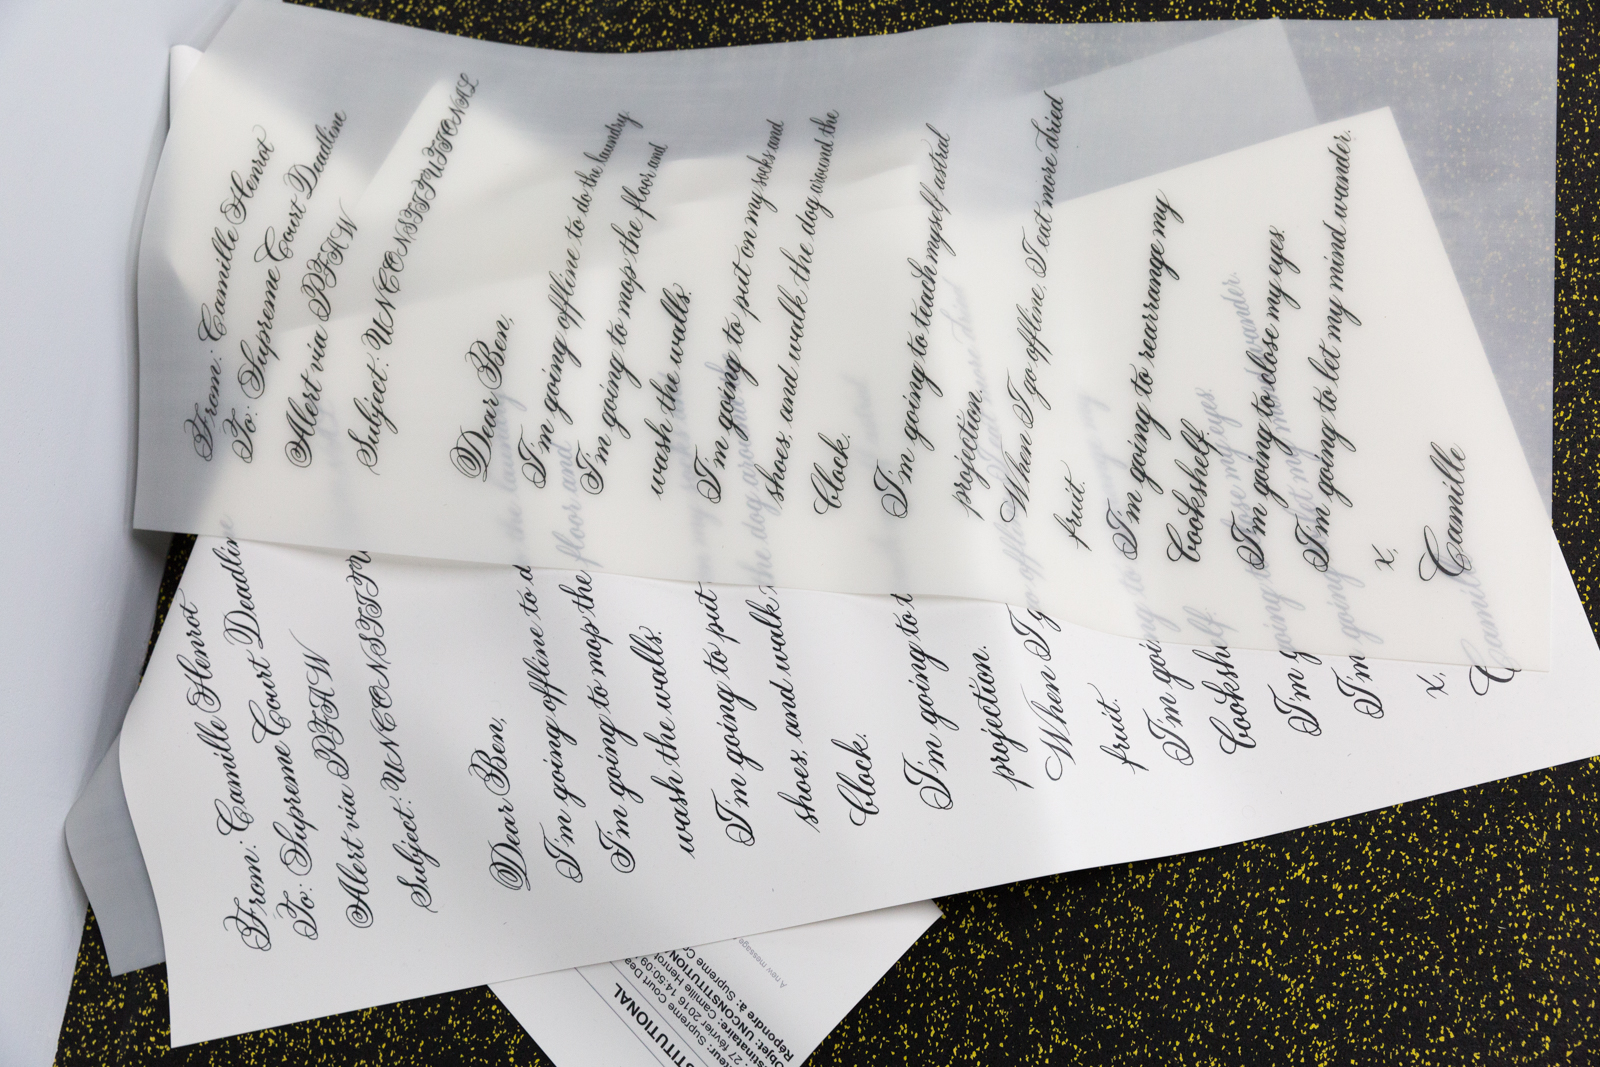 From: Camille Henrot
To: Supreme Court Deadline
Alert via PFAW
Subject: UNCONSTITUTIONAL
Dear Ben,
I'm going offline to do the laundry
I'm going to mop the floor and
wash the walls.
I'm going to put on my socks and
shoes, and walk the dog around the
block.
I'm going to teach myself astral
projection.
When I go offline, I eat more dried
fruit.
I'm going to rearrange my
bookshelf.
I'm going to close my eyes.
I'm going to let my mind wander.
x,
Camille
From: Camille Henrot
To: Supreme Court Deadline
Alert via PFAW
Subject: UNCONSTITU
Dear Ben,
I'm going offline to d
I'm going to mop the floor and
wash the walls.
I'm going to put
shoes, and walk the dog around
block.
I'm going to t
projection.
When I go offline
fruit.
I'm going to
bookshelf.
I'm going to close my eyes.
I'm going to let my mind wander.
x,
Camille
STITUTIONAL
teur: Supreme Court Dea
27 février 2016 14:50:09
stinataire: Camille Henrot
Objet: UNCONSTITUTION
Répondre à: Supreme C
A new message